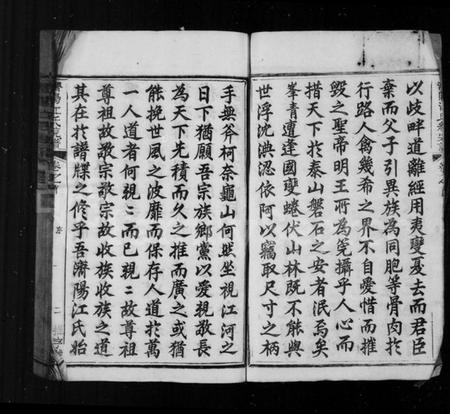 以歧畔道離經用夷變憂去而君臣
棄而父子引異族為同胞等骨肉於
行路人禽幾希之界不自愛惜而摧
毀之聖帝明王所為筦攝乎人心而
措天下於泰山磐石之安者泯焉矣
峯青遭逢國變蜷伏山林既不能與
世浮沈淟涊依阿以竊取尺寸之柄
手無斧柯奈龜山何然坐視江河之
日下猶願吾宗族鄉黨以愛視敬長
為天下先積而久之推而廣之或猶
能挽世風之波靡而保存人道於萬
一人道者何視二而已視二故尊祖
尊祖故敬宗敬宗故收族收族之道
其在於譜牒之修乎吾濟陽江氏始